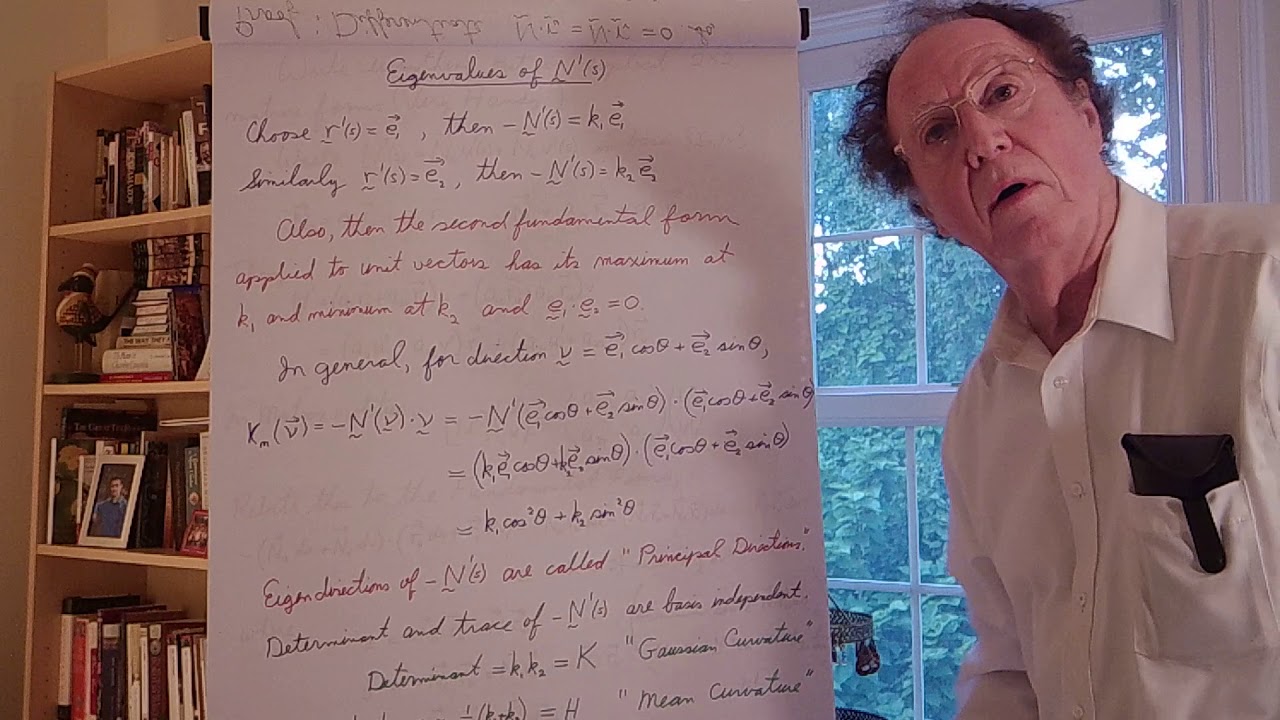 Proof : Differentiate
Eigenvalues of N'(s)
Choose r'(s) = e⃗₁ , then −N'(s) = k₁ e⃗₁
Similarly r'(s) = e⃗₂ , then −N'(s) = k₂ e⃗₂
Also, then the second fundamental form
applied to unit vectors has its maximum at
k₁ and minimum at k₂ and e₁ · e₂ = 0.
In general, for direction v = e⃗₁ cosθ + e⃗₂ sinθ,
Kₘ(v⃗) = −N'(v) · v = −N'(e⃗₁cosθ + e⃗₂ sinθ) · (e⃗₁cosθ + e⃗₂ sinθ)
= (k₁e⃗₁ cosθ + k₂e⃗₂ sinθ) · (e⃗₁cosθ + e⃗₂ sinθ)
= k₁ cos²θ + k₂ sin²θ
Eigendirections of −N'(s) are called "Principal Directions."
Determinant and trace of −N'(s) are basis independent.
Determinant = k₁k₂ = K "Gaussian Curvature"
½(k₁+k₂) = H "Mean Curvature"